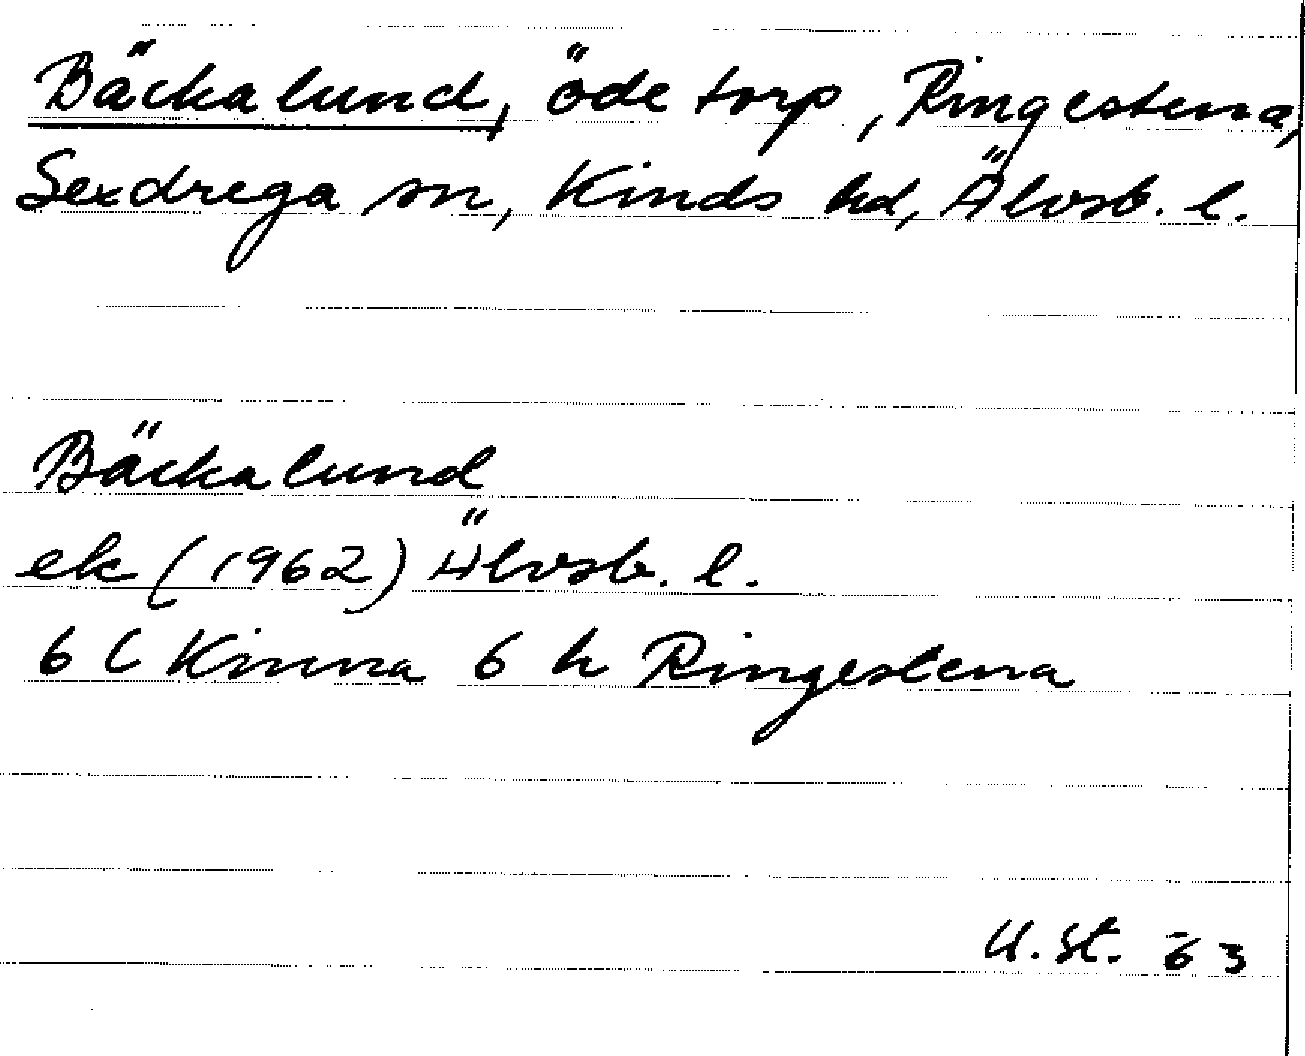 Bäckalund, öde torp, Ringestena,
Sexdrega sn, Kinds hd, Älvsb. l.
Bäckalund
ek (1962) Älvsb. l.
6 C Kinna 6 h Ringestena
U.St. 63